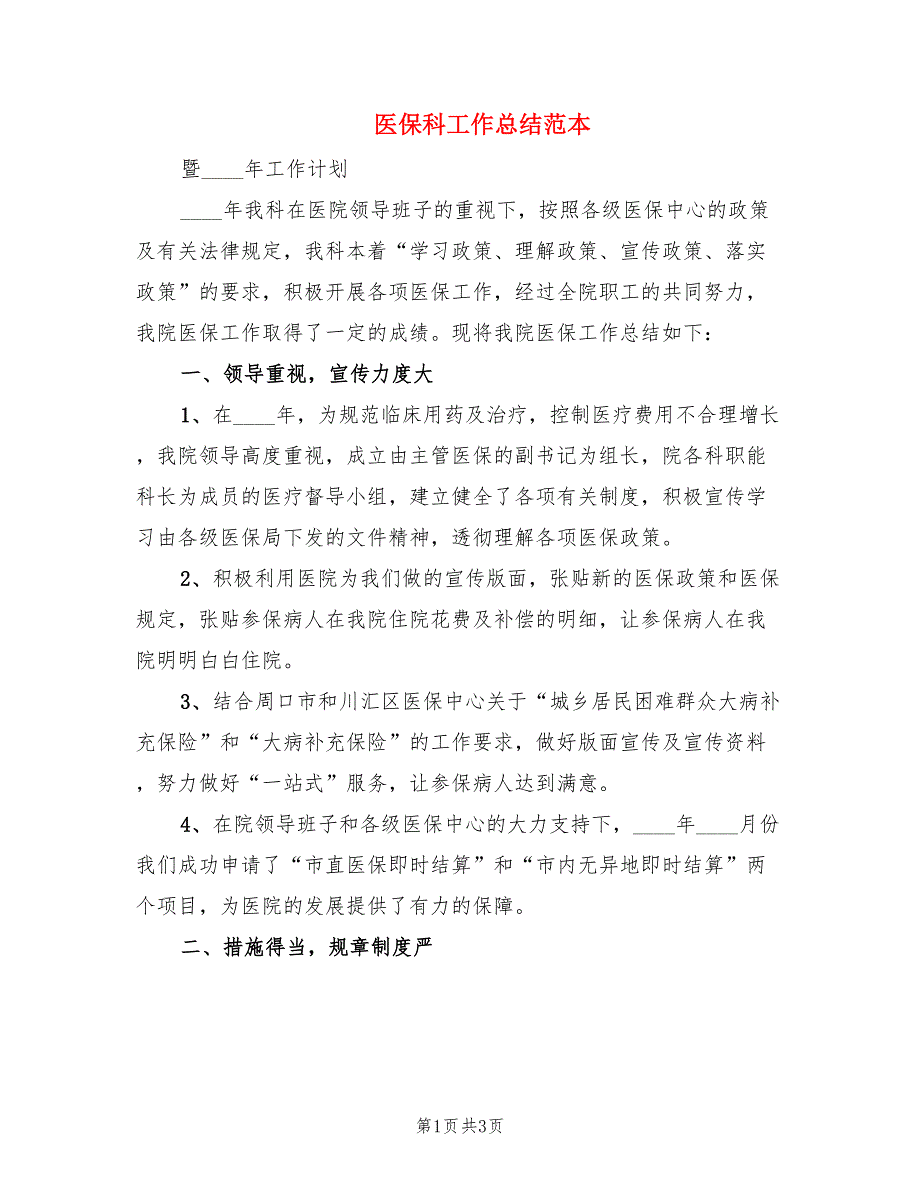 医保科工作总结范本
暨____年工作计划
____年我科在医院领导班子的重视下，按照各级医保中心的政策
及有关法律规定，我科本着“学习政策、理解政策、宣传政策、落实
政策”的要求，积极开展各项医保工作，经过全院职工的共同努力，
我院医保工作取得了一定的成绩。现将我院医保工作总结如下：
一、领导重视，宣传力度大
1、在____年，为规范临床用药及治疗，控制医疗费用不合理增长
，我院领导高度重视，成立由主管医保的副书记为组长，院各科职能
科长为成员的医疗督导小组，建立健全了各项有关制度，积极宣传学
习由各级医保局下发的文件精神，透彻理解各项医保政策。
2、积极利用医院为我们做的宣传版面，张贴新的医保政策和医保
规定，张贴参保病人在我院住院花费及补偿的明细，让参保病人在我
院明明白白住院。
3、结合周口市和川汇区医保中心关于“城乡居民困难群众大病补
充保险”和“大病补充保险”的工作要求，做好版面宣传及宣传资料
，努力做好“一站式”服务，让参保病人达到满意。
4、在院领导班子和各级医保中心的大力支持下，____年____月份
我们成功申请了“市直医保即时结算”和“市内无异地即时结算”两
个项目，为医院的发展提供了有力的保障。
二、措施得当，规章制度严
第1页 共3页